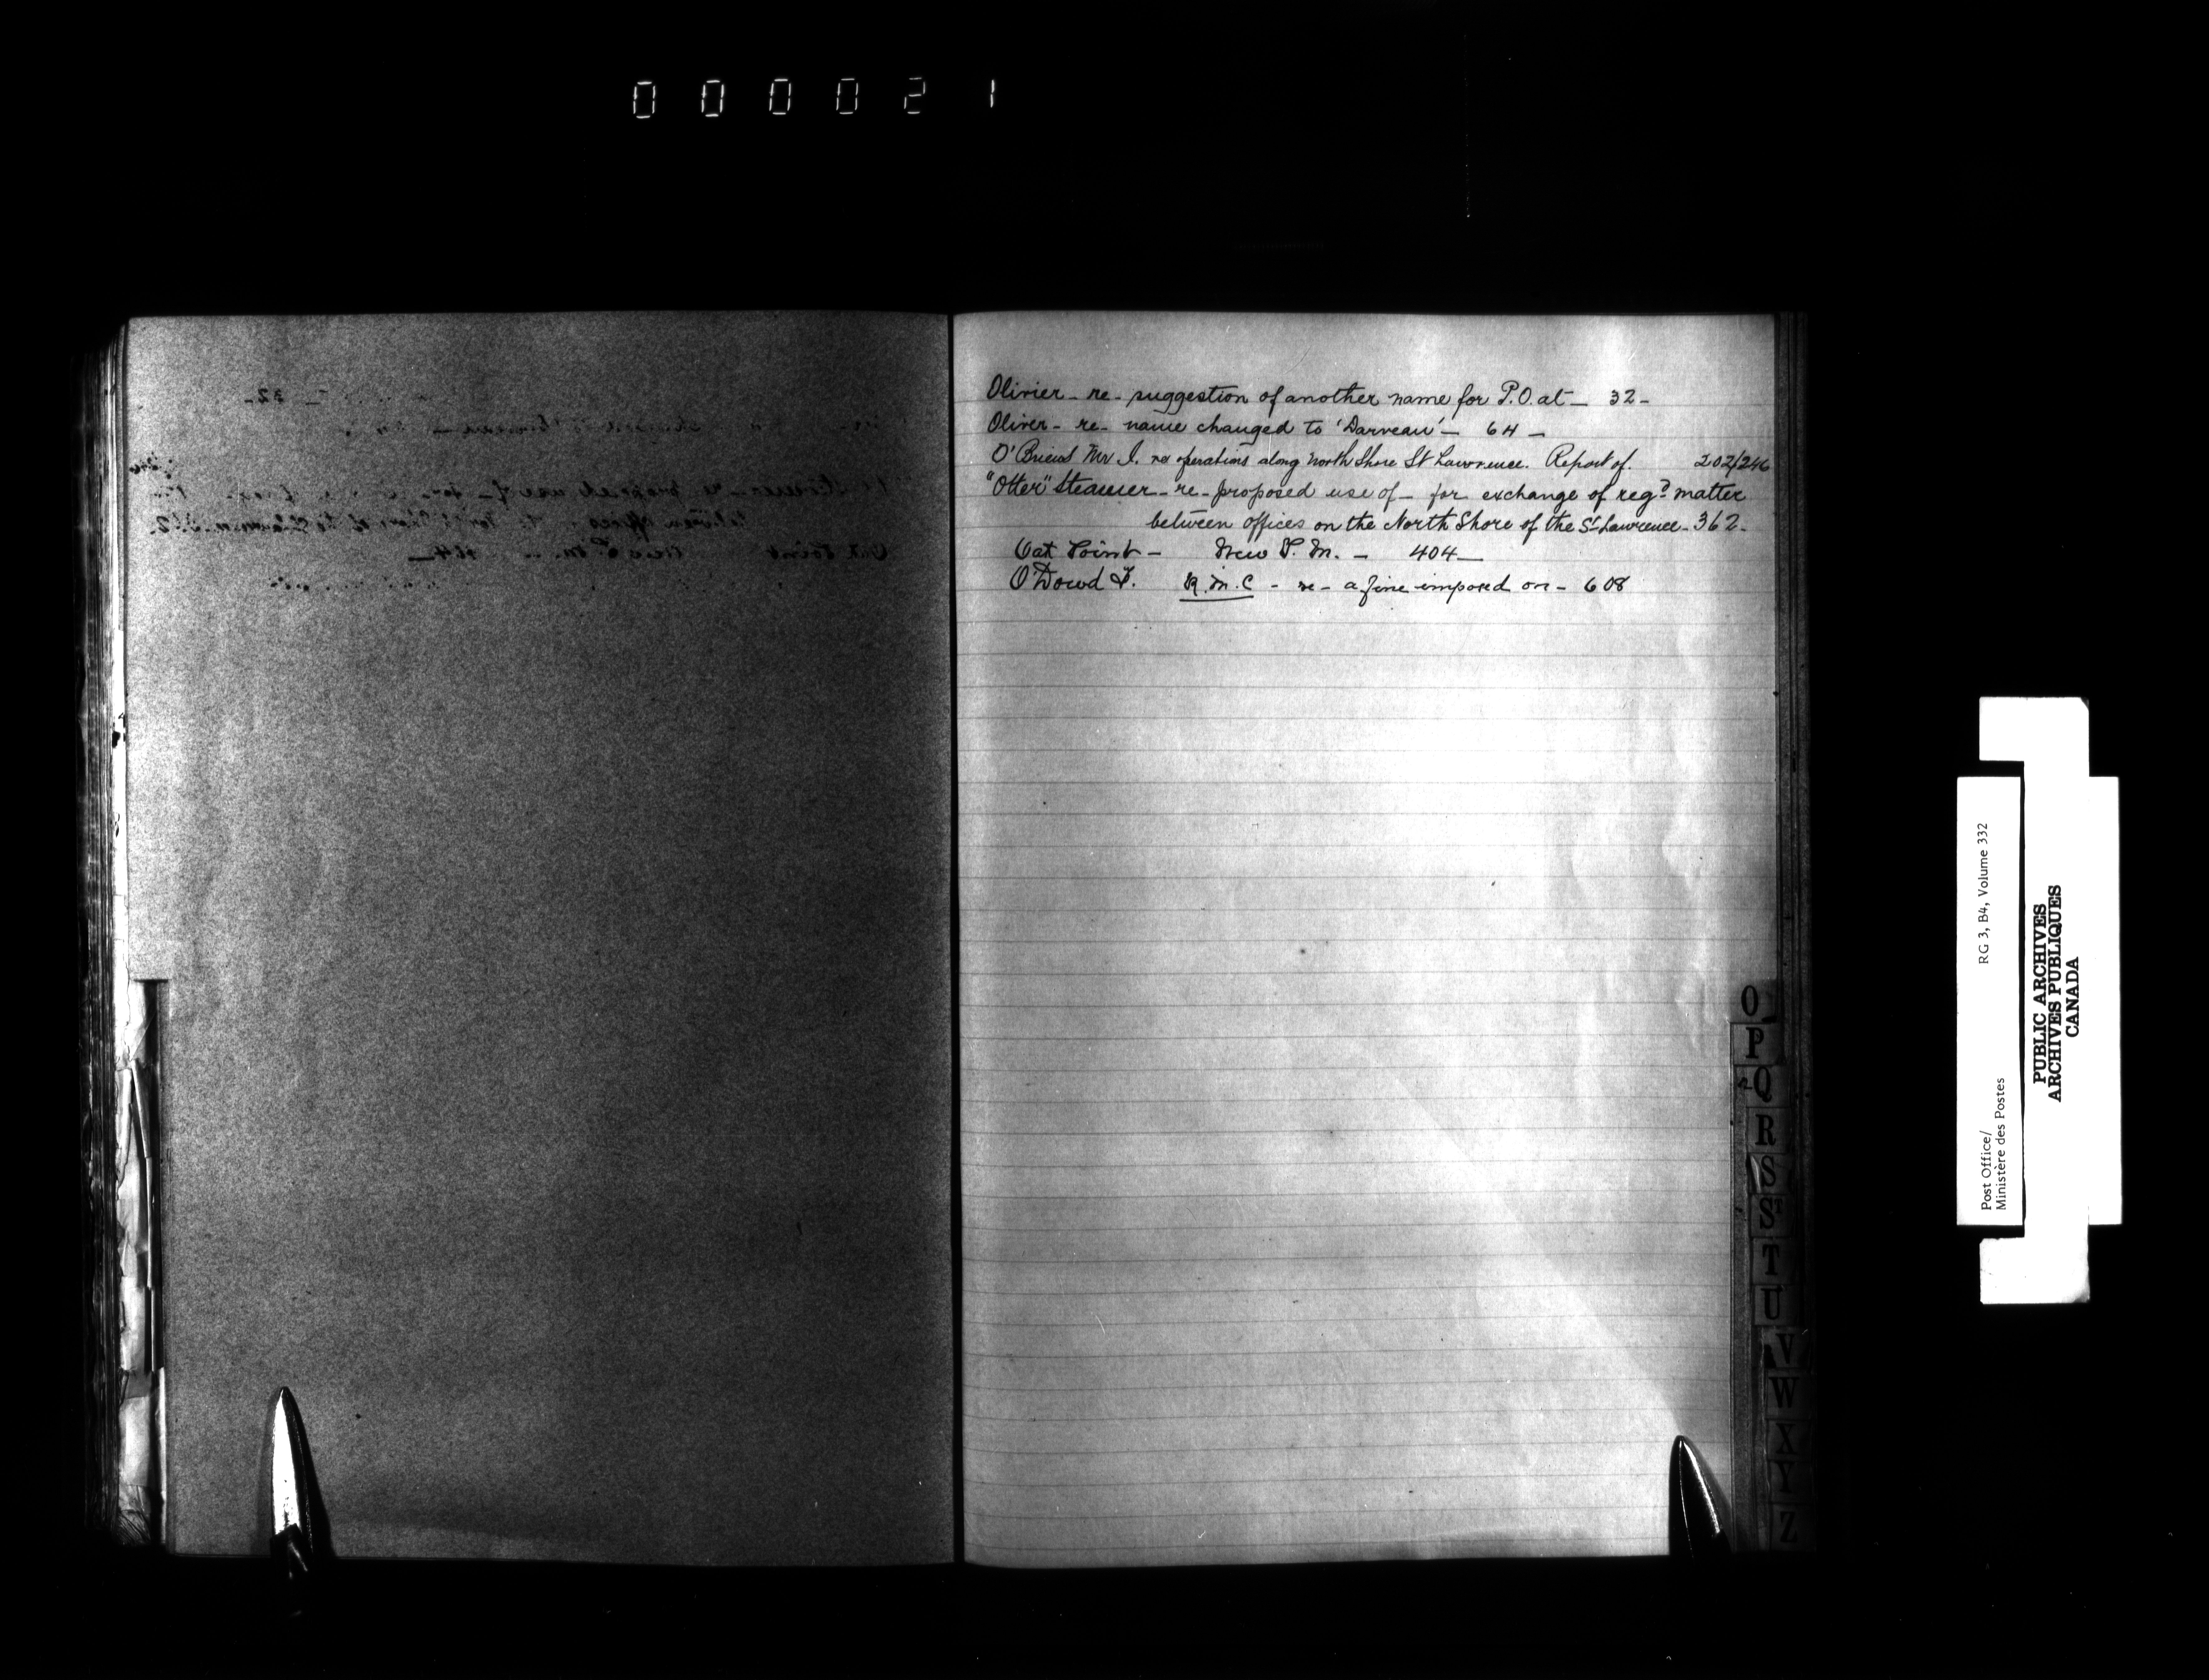 000021
Olivier - re - suggestion of another name for P.O. at - 32 -
Oliver - re - name changed to 'Darveau' - 64 -
Mr I. re operations along North Shore St Lawrence. Report of. 202/246
"Otter" Steamer - re - proposed use of - for exchange of regd matter
between offices on the North Shore of the St Lawrence - 362 -
Oat Point - New P.M. - 404 -
O'Dowd F. R.M.C - re - a fine imposed on - 608
O
P
Q
R
S
St
T
U
V
W
X
Y
Z
Post Office/
Ministère des Postes
RG 3, B4, Volume 332
PUBLIC ARCHIVES
ARCHIVES PUBLIQUES
CANADA